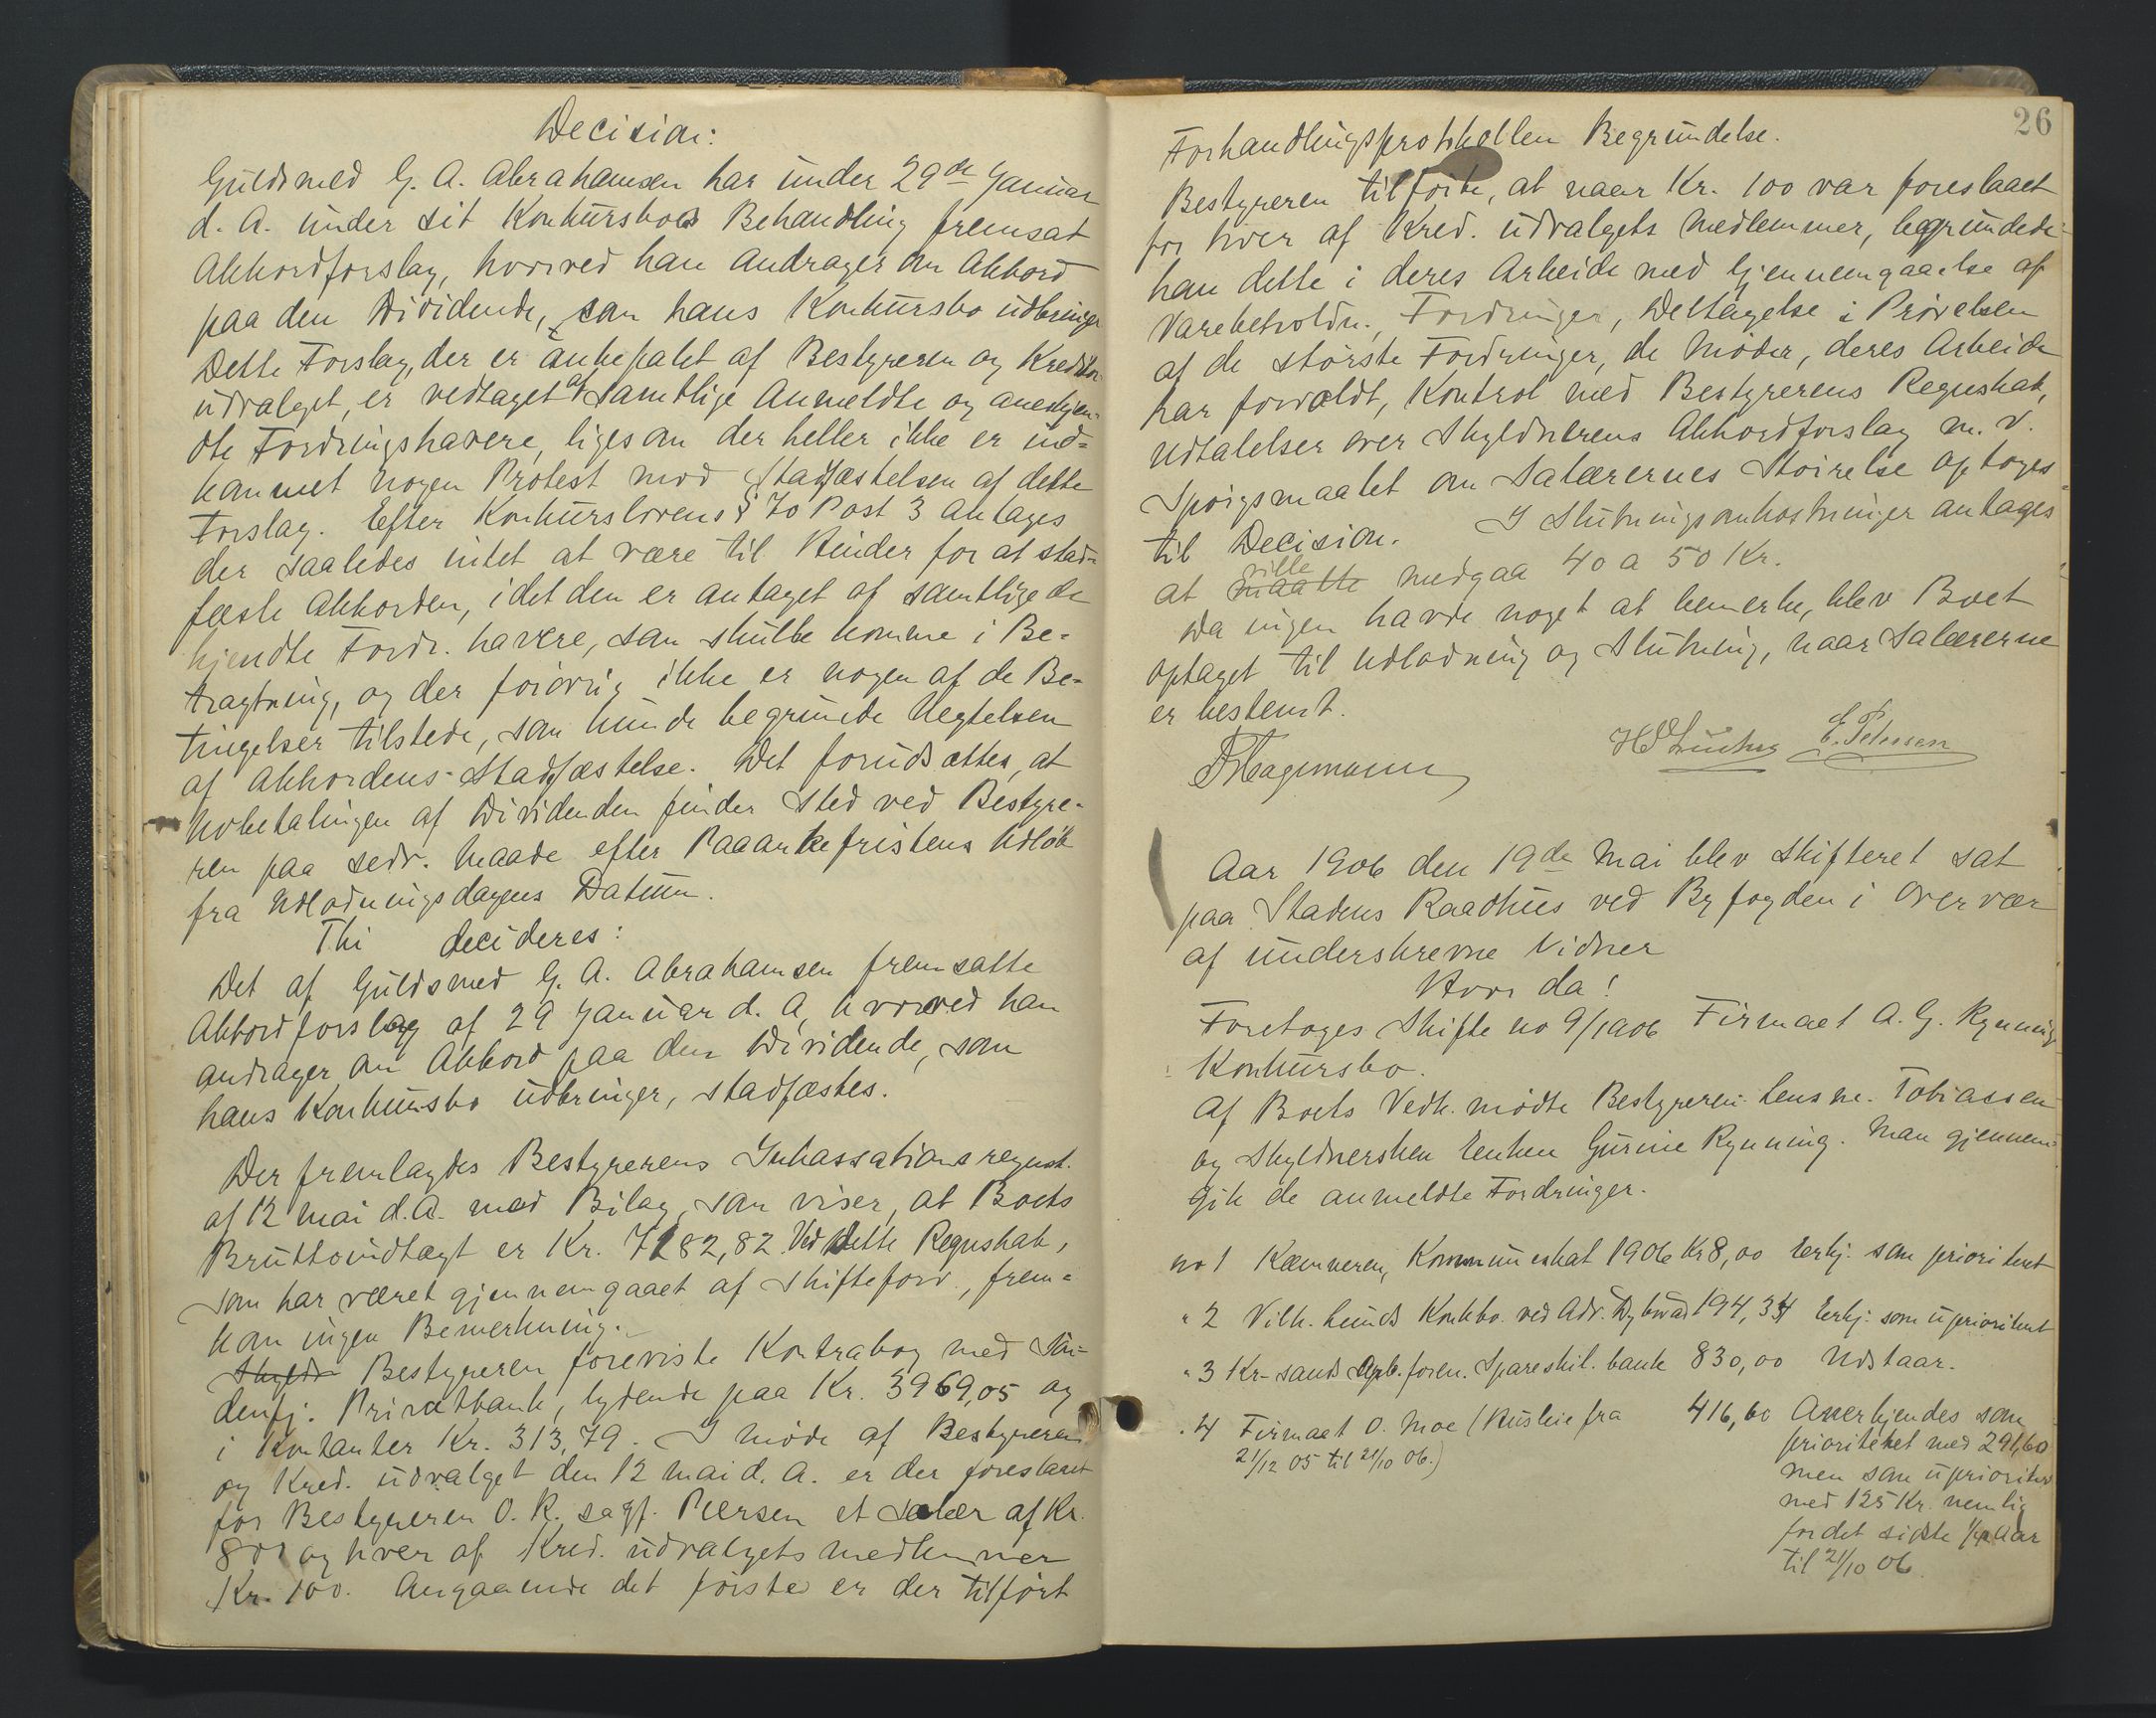 Decision:
Guldsmed G. A. Abrahamsen har under 29de Januar
d. A. under sit Konkursbos Behandling fremsat
Akkordforslag, hvorved han andrager om Akkord
paa den Dividende, som hans Konkursbo udbringer
Dette Forslag, der er anbefalet af Bestyreren og Kreditor-
udvalget, er vedtaget af samtlige anmeldte og anerkjen-
dte Fordringshavere, ligesom der heller ikke er ind-
kommet nogen Protest mod Stadfæstelsen af dette
Forslag. Efter Konkurslovens § 70 Post 3 antages
der saaledes intet at være til Hinder for at stad-
fæste Akkorden, idet den er antaget af samtlige de
kjendte Fordr. havere, som skulle komme i Be-
tragtning, og der forøvrig ikke er nogen af de Be-
tingelser tilstede, som kunde begrunde Negtelsen
af Akkordens Stadfæstelse. Det forudsættes, at
Udbetalingen af Dividenden finder Sted ved Bestyre-
ren paa sedv. Maade efter Paaankefristens Udløb
fra Udlodningsdagens Datum.
Thi decideres:
Det af Guldsmed G. A. Abrahamsen fremsatte
Akkordforslag af 29 Januar d. A, hvorved han
andrager om Akkord paa den Dividende, som
hans Konkursbo udbringer, stadfæstes.
Der fremlagdes Bestyrerens Inkassationsregnsk.
af 12 mai d.A. med Bilag, som viser, at Boets
Bruttoindtægt er Kr. 7182,82. Ved dette Regnskab,
som har været gjennemgaaet af Skifteforv., frem-
kom ingen Bemerkning.
Skyldn Bestyreren foreviste Kontrabog med Søn-
denfj. Privatbank, lydende paa Kr. 3969,05 og
i Kontanter Kr. 313,79. I møde af Bestyreren
og Kred. udvalget den 12 mai d. A. er der foreslaaet
for Bestyreren O. R. sagf. Peersen et Salær af Kr.
800 og hver af Kred. udvalgets medlemmer
Kr. 100. Angaaende det første er der tilført
26
Forhandlingsprotokollen Begrundelse.
Bestyreren tilføite, at naar Kr. 100 var foreslaaet
for hver af Kred. udvalgets Medlemmer, begrundede
han dette i deres Arbeide med Gjennemgaaelse af
Varebeholdn., Fordringer, Deltagelse i Prøvelsen
af de største Fordringer, de Møder, deres Arbeide
har forvoldt, Kontrol med Bestyrerens Regnskab,
Udtalelser over Skyldnerens Akkordforslag m. v.
Spørgsmaalet om Salærernes Størelse optoges
til Decision. I Slutningsomkostninger antages
at maatte ville medgaa 40 a 50 Kr.
Da ingen havde noget at bemerke, blev Boet
optaget til Udlodning og Slutning, naar Salærerne
er bestemt.
E. Petersen
Aar 1906 den 19de Mai blev Skifteret sat
paa Stadens Raadhus ved Byfogden i Overvær
af underskrevne Vidner
Hvor da!
Foretoges Skifte no 9/1906 Firmaet A. G. Rynnings
Konkursbo.
Af Boets Vedk. mødte Bestyreren Lensm. Tobiassen
og Skyldnersken Enken Gurine Rynning. Man gjennem-
gik de anmeldte Fordringer.
no 1 Kæmneren, Kommuneskat 1906 Kr 8,00 Erkj. som prioriteret
" 2 Vilh. Lunds Konkbo. ved Adv. Dybwad 194,34 Erkj. som uprioritert
" 3 Kr-sands Arb. foren. Spareskil. bank 830,00 Udstaar.
" 4 Firmaet O. Moe (Husleie fra 416,60 Anerkjendes som
21/12 05 til 21/10 06.)
prioriteret med 291,60
men som uprioriteret
med 125 Kr. nemlig
for det sidste 1/4 Aar
til 21/10 06.